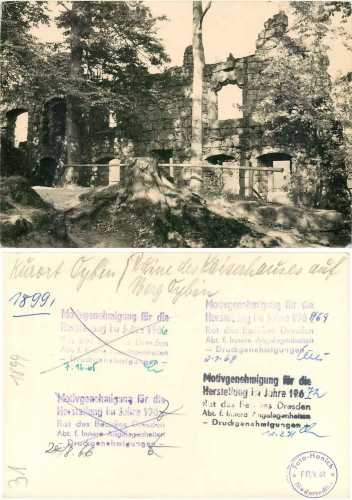 Kurort Oybin / Ruine des Kaiserhauses auf
Berg Oybin
1899,
Motivgenehmigung für die
Herstellung im Jahre 196
Rat des Bezirkes Dresden
Abt. f. Innere Angelegenheiten
- Druckgenehmigungen -
7.12.65
Motivgenehmigung für die
Herstellung im Jahre 196
Rat des Bezirkes Dresden
Abt. f. Innere Angelegenheiten
- Druckgenehmigungen -
1899
Motivgenehmigung für die
Herstellung im Jahre 196
Rat des Bezirkes Dresden
Abt. f. Innere Angelegenheiten
- Druckgenehmigungen -
8.66
Motivgenehmigung für die
Herstellung im Jahre 196
Rat des Bezirkes Dresden
Abt. f. Innere Angelegenheiten
- Druckgenehmigungen -
31